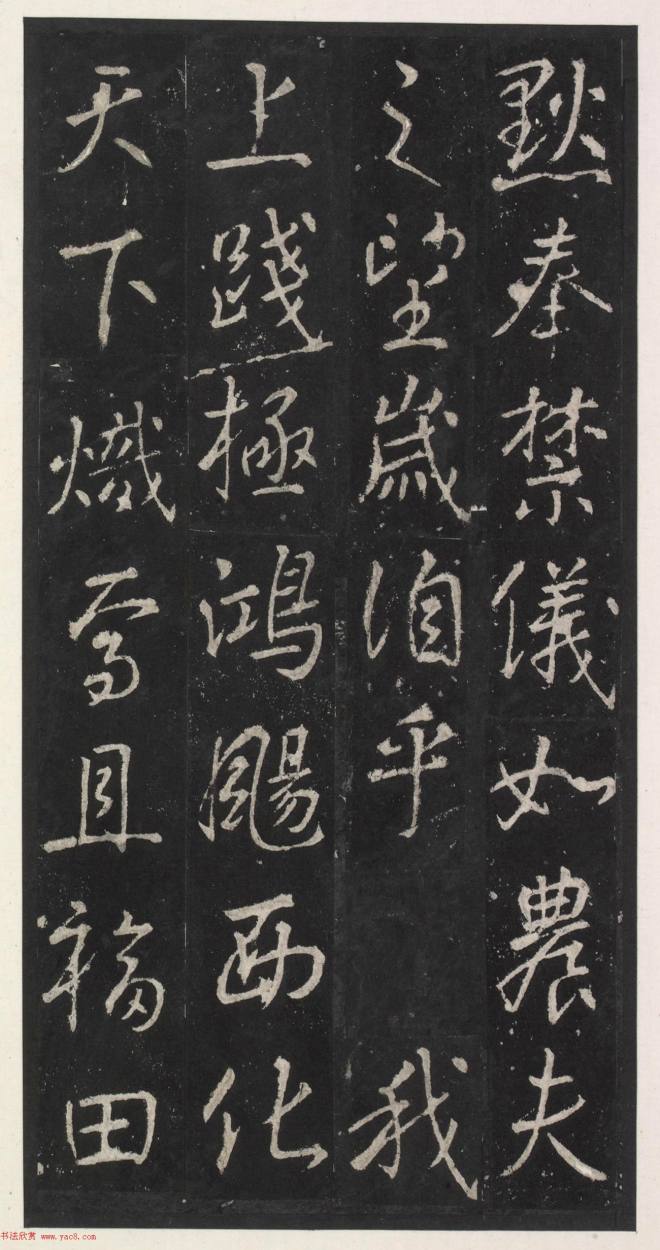 黙奉禁儀如農夫
之望歲洎乎 我
上踐極鴻颺西化
天下熾焉且福田
书法欣赏 www.yac8.com